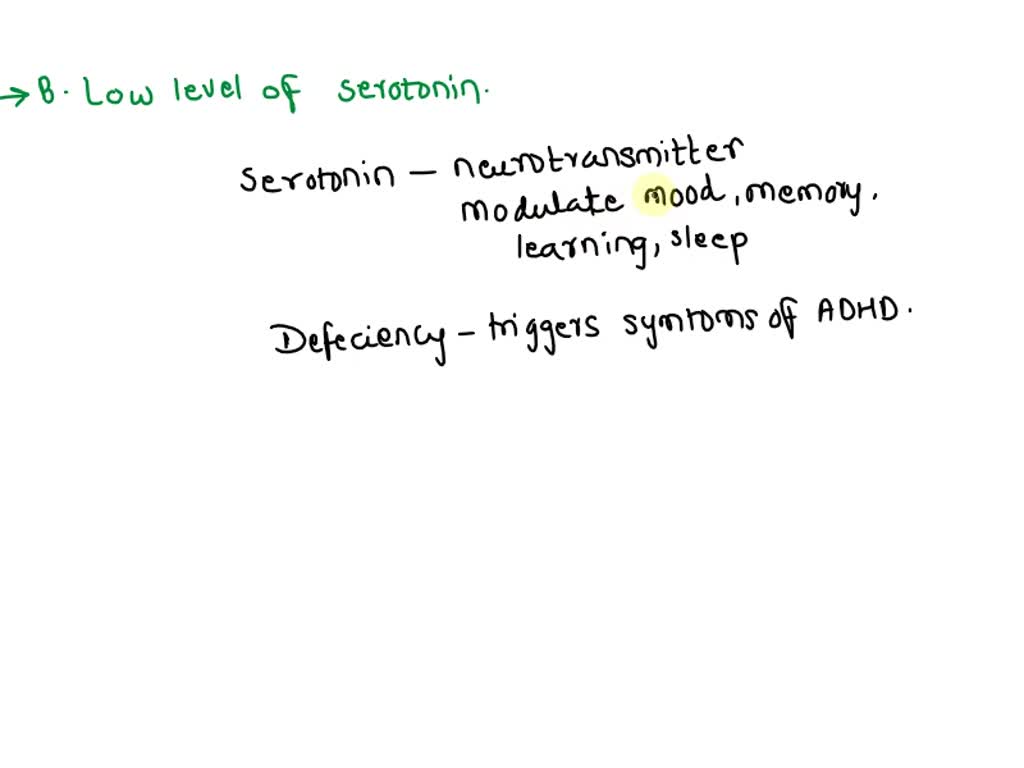 → B. Low level of serotonin.
Serotonin - neurotransmitter
modulate mood, memory.
learning, sleep
Defeciency - triggers symtoms of ADHD.